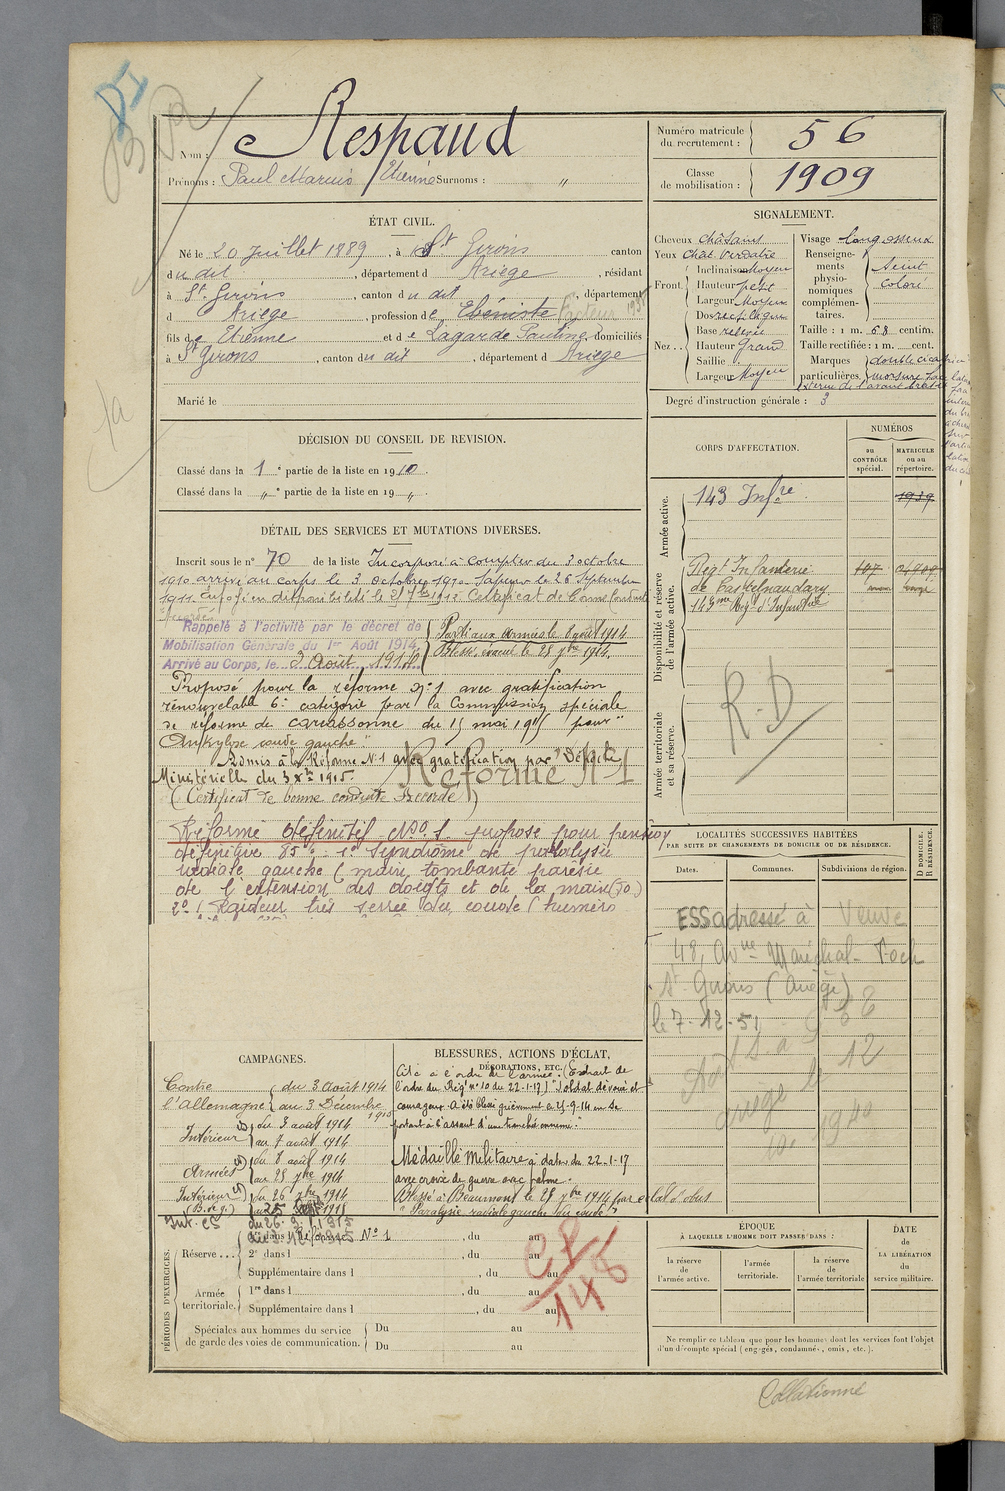 Nom : Respaud
Prénoms : Paul Marius Etienne Surnoms : "
Numéro matricule du recrutement : 56
Classe de mobilisation : 1909
ÉTAT CIVIL.
Né le 20 Juillet 1889, à St Girons canton
du dit, département d Ariège, résidant
à St. Girons, canton du dit, département
d Ariège, profession de Ebéniste facteur
fils de Etienne et de Lagarde Pauline, domiciliés
à St Girons, canton du dit, département d Ariège
Marié le
SIGNALEMENT.
Cheveux châtains
Yeux chât. verdâtre
Front. Inclinaison Moyen
Hauteur petit
Largeur Moyen
Nez.. Dos rectiligne
Base relevée
Hauteur Grand
Saillie
Largeur Moyen
Visage long osseux
Renseignements physionomiques complémentaires. teint coloré
Taille : 1 m. 68 centim.
Taille rectifiée : 1 m. cent.
Marques particulières. double cicatrice
morsure face
externe de l'avant bras
Degré d'instruction générale : 3
DÉCISION DU CONSEIL DE REVISION.
Classé dans la 1e partie de la liste en 1910.
Classé dans la " e partie de la liste en 19 "
CORPS D'AFFECTATION.
NUMÉROS
au CONTRÔLE spécial.
MATRICULE ou au répertoire.
Armée active.
143 Infre
Disponibilité et réserve de l'armée active.
Régt Infanterie
de Castelnaudary
143me Régt d'Infanterie
R-D
Armée territoriale et sa réserve.
DÉTAIL DES SERVICES ET MUTATIONS DIVERSES.
Inscrit sous le n° 70 de la liste Incorporé à compter du 3 octobre
1910 arrivé au corps le 3 octobre 1910. Sapeur le 26 Septembre
1911. Envoyé en disponibilité le 27 7bre 1912 Certificat de bonne conduite
accordé.
Rappelé à l'activité par le décret de
Mobilisation Générale du 1er Août 1914.
Arrivé au Corps, le 3 Août 1914
Parti aux armées le 8 août 1914
Blessé, évacué le 25 7bre 1914.
Proposé pour la réforme n° 1 avec gratification
renouvelable 6e catégorie par la Commission spéciale
de réforme de Carcassonne du 15 mai 1915 pour "
Ankylose coude gauche."
Admis à la Réforme N°1 avec gratification par Dépêche
Ministérielle du 3 Xbre 1915.
Réforme N°1
(Certificat de bonne conduite Accordé)
Réformé définitif No 1. propose pour pension
définitive 85 % 1° Syndrôme de paralysie
radiale gauche (main tombante parésie
de l'extension des doigts et de la main (50)
2° / Raideur très serrée du coude (huméro
LOCALITÉS SUCCESSIVES HABITÉES
PAR SUITE DE CHANGEMENTS DE DOMICILE OU DE RÉSIDENCE.
D DOMICILE. R RÉSIDENCE.
Dates.
Communes.
Subdivisions de région.
ESS adressé à Veuve
48, Avnue Maréchal-Foch
St Girons (Ariège)
le 7-12-51
CAMPAGNES.
Contre l'Allemagne du 3 Août 1914
au 3 Décembre 1915
Intérieur du 3 août 1914
au 7 août 1914
Armées du 8 août 1914
au 25 7bre 1914
Intérieur du 26 7bre 1914
BLESSURES, ACTIONS D'ÉCLAT,
DÉCORATIONS, ETC.
Cité à l'ordre de l'armée. (Extrait de
l'ordre du Régt n° 10 du 22-1-17) "Soldat dévoué et
courageux. A été blessé grièvement le 25-9-14 en se
portant à l'assaut d'une tranchée ennemie."
Médaille Militaire à dater du 22-1-17
avec croix de guerre avec palme.
Blessé à Beaumont le 25 7bre 1914 par éclat d'obus
"Paralysie radiale gauche du coude"
PÉRIODES D'EXERCICES.
Réserve... Réforme N° 1, du au
2e dans l, du au
Supplémentaire dans l, du au
Armée territoriale. 1re dans l, du au
Supplémentaire dans l, du au
Spéciales aux hommes du service de garde des voies de communication. Du au
Du au
CP
148
ÉPOQUE
À LAQUELLE L'HOMME DOIT PASSER DANS :
la réserve de l'armée active.
l'armée territoriale.
la réserve de l'armée territoriale
DATE de LA LIBÉRATION du service militaire.
Ne remplir ce tableau que pour les hommes dont les services font l'objet
d'un décompte spécial (engagés, condamnés, omis, etc.).
Collationné